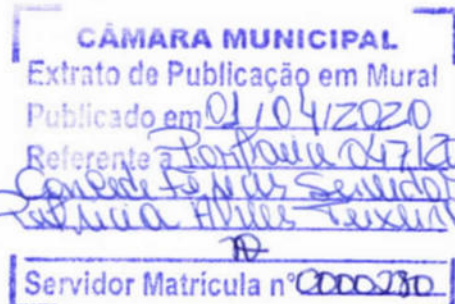 CÂMARA MUNICIPAL
Extrato de Publicação em Mural
Publicado em 01/04/2020
Referente a Portaria 047/20
Concede Férias Servidor
Patricia Alves Teixeir
Servidor Matrícula nº 0000280